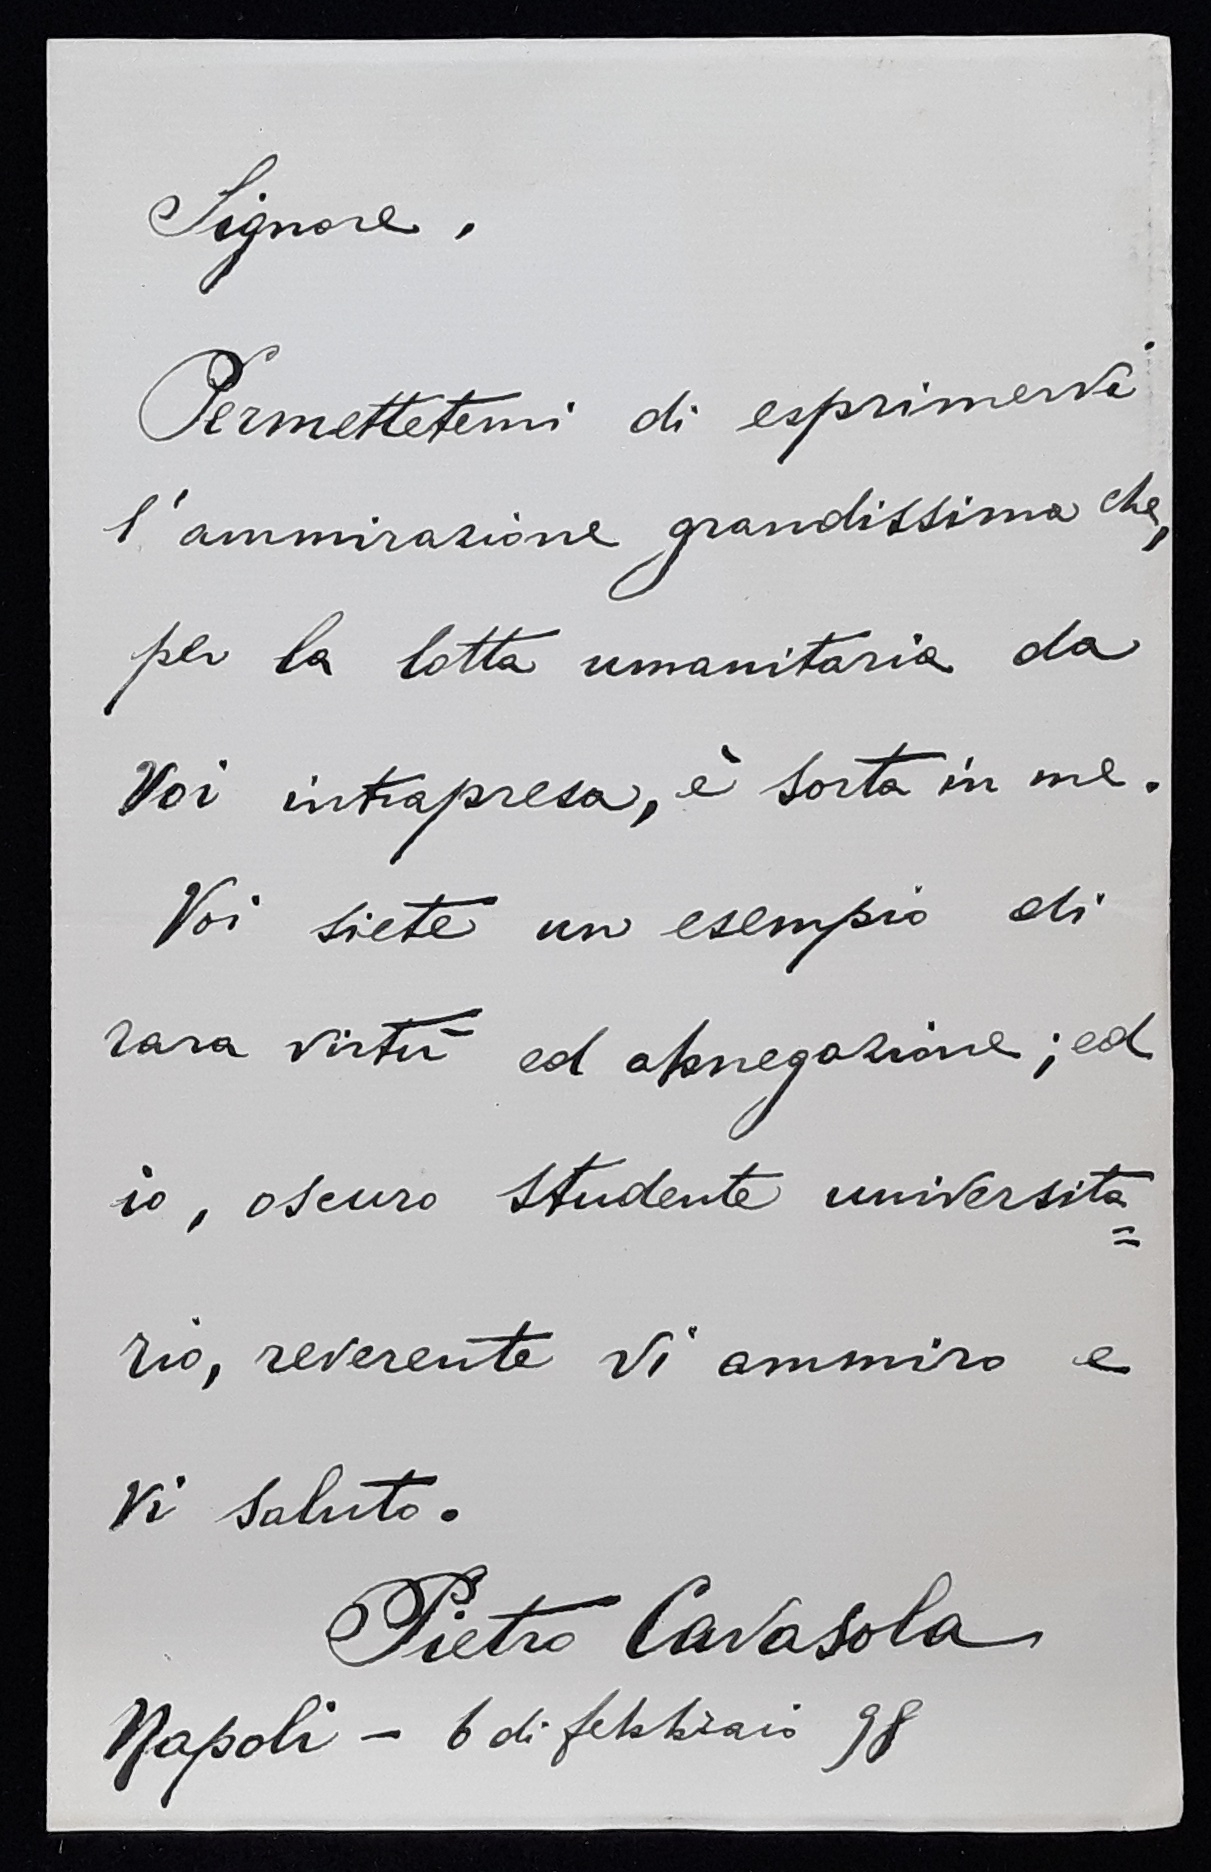 Signore,
Permettetemi di esprimervi
l'ammirazione grandissima che,
per la lotta umanitaria da
Voi intrapresa, è sorta in me.
Voi siete un esempio di
rara virtù ed abnegazione; ed
io, oscuro studente universita=
rio, reverente vi ammiro e
vi saluto.
Pietro Cavasola
Napoli - 6 di febbraio 98